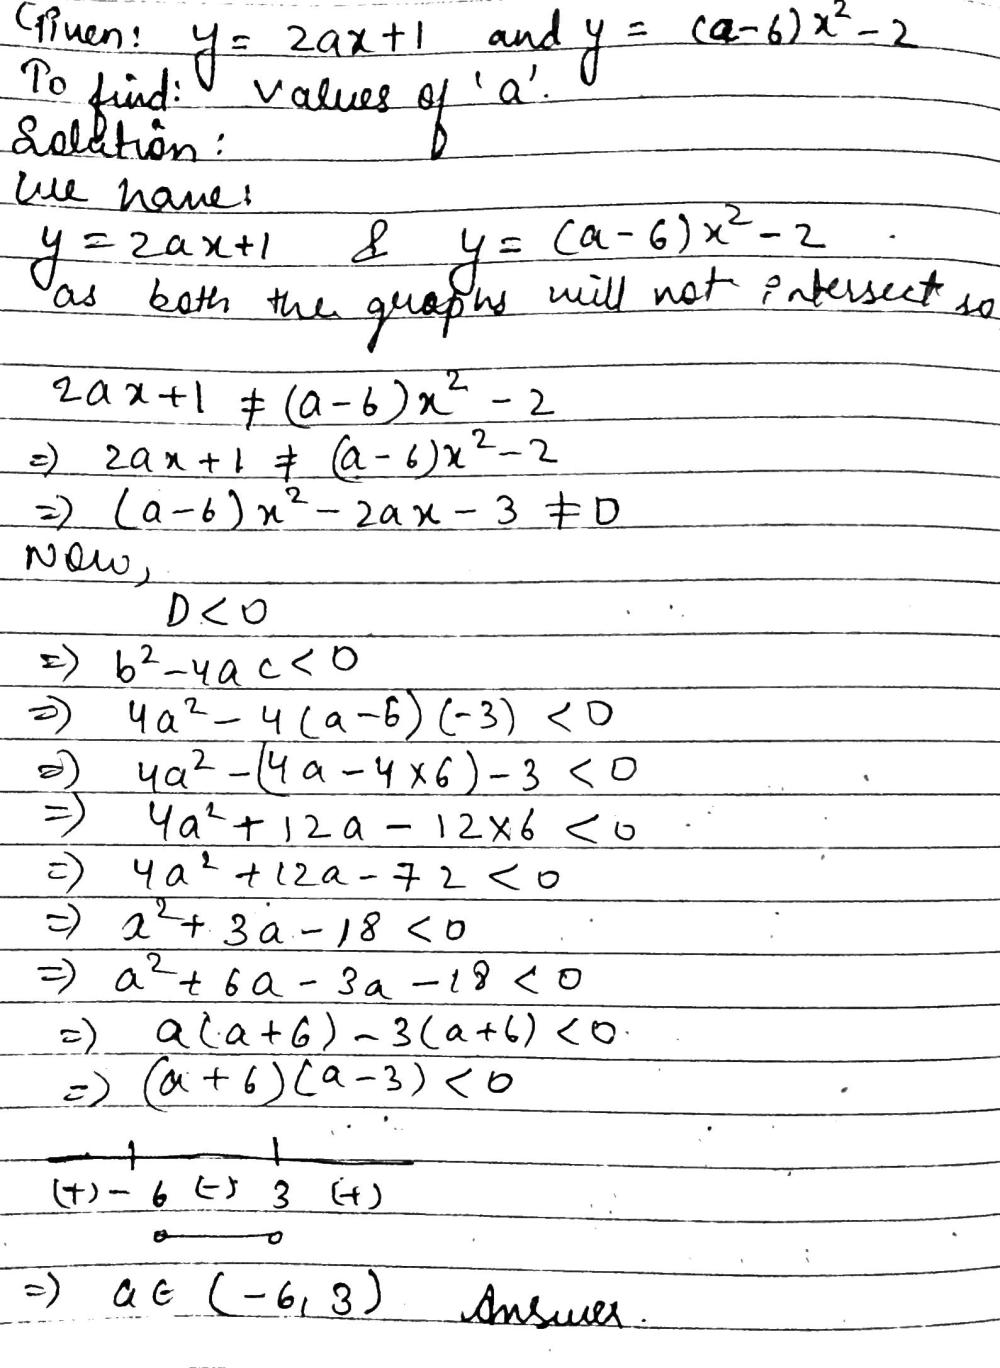 Given: y = 2ax+1 and y = (a-6)x² - 2
To find: values of 'a'.
Solution:
We have:
y = 2ax+1 & y = (a-6)x² - 2
as both the graphs will not intersect so
2ax+1 ≠ (a-6)x² - 2
=) 2ax+1 ≠ (a-6)x² - 2
=) (a-6)x² - 2ax - 3 ≠ 0
Now,
D<0
=) b²-4ac<0
=) 4a² - 4(a-6)(-3) <0
=) 4a² -(4a-4×6)-3 <0
=) 4a² + 12a - 12×6 <0
=) 4a² +12a-72 <0
=) a² + 3a - 18 <0
=) a² + 6a - 3a - 18 <0
=) a(a+6) - 3(a+6) <0
=) (a+6)(a-3) <0
(+) -6 (-) 3 (+)
=) a ∈ (-6, 3) Answer.